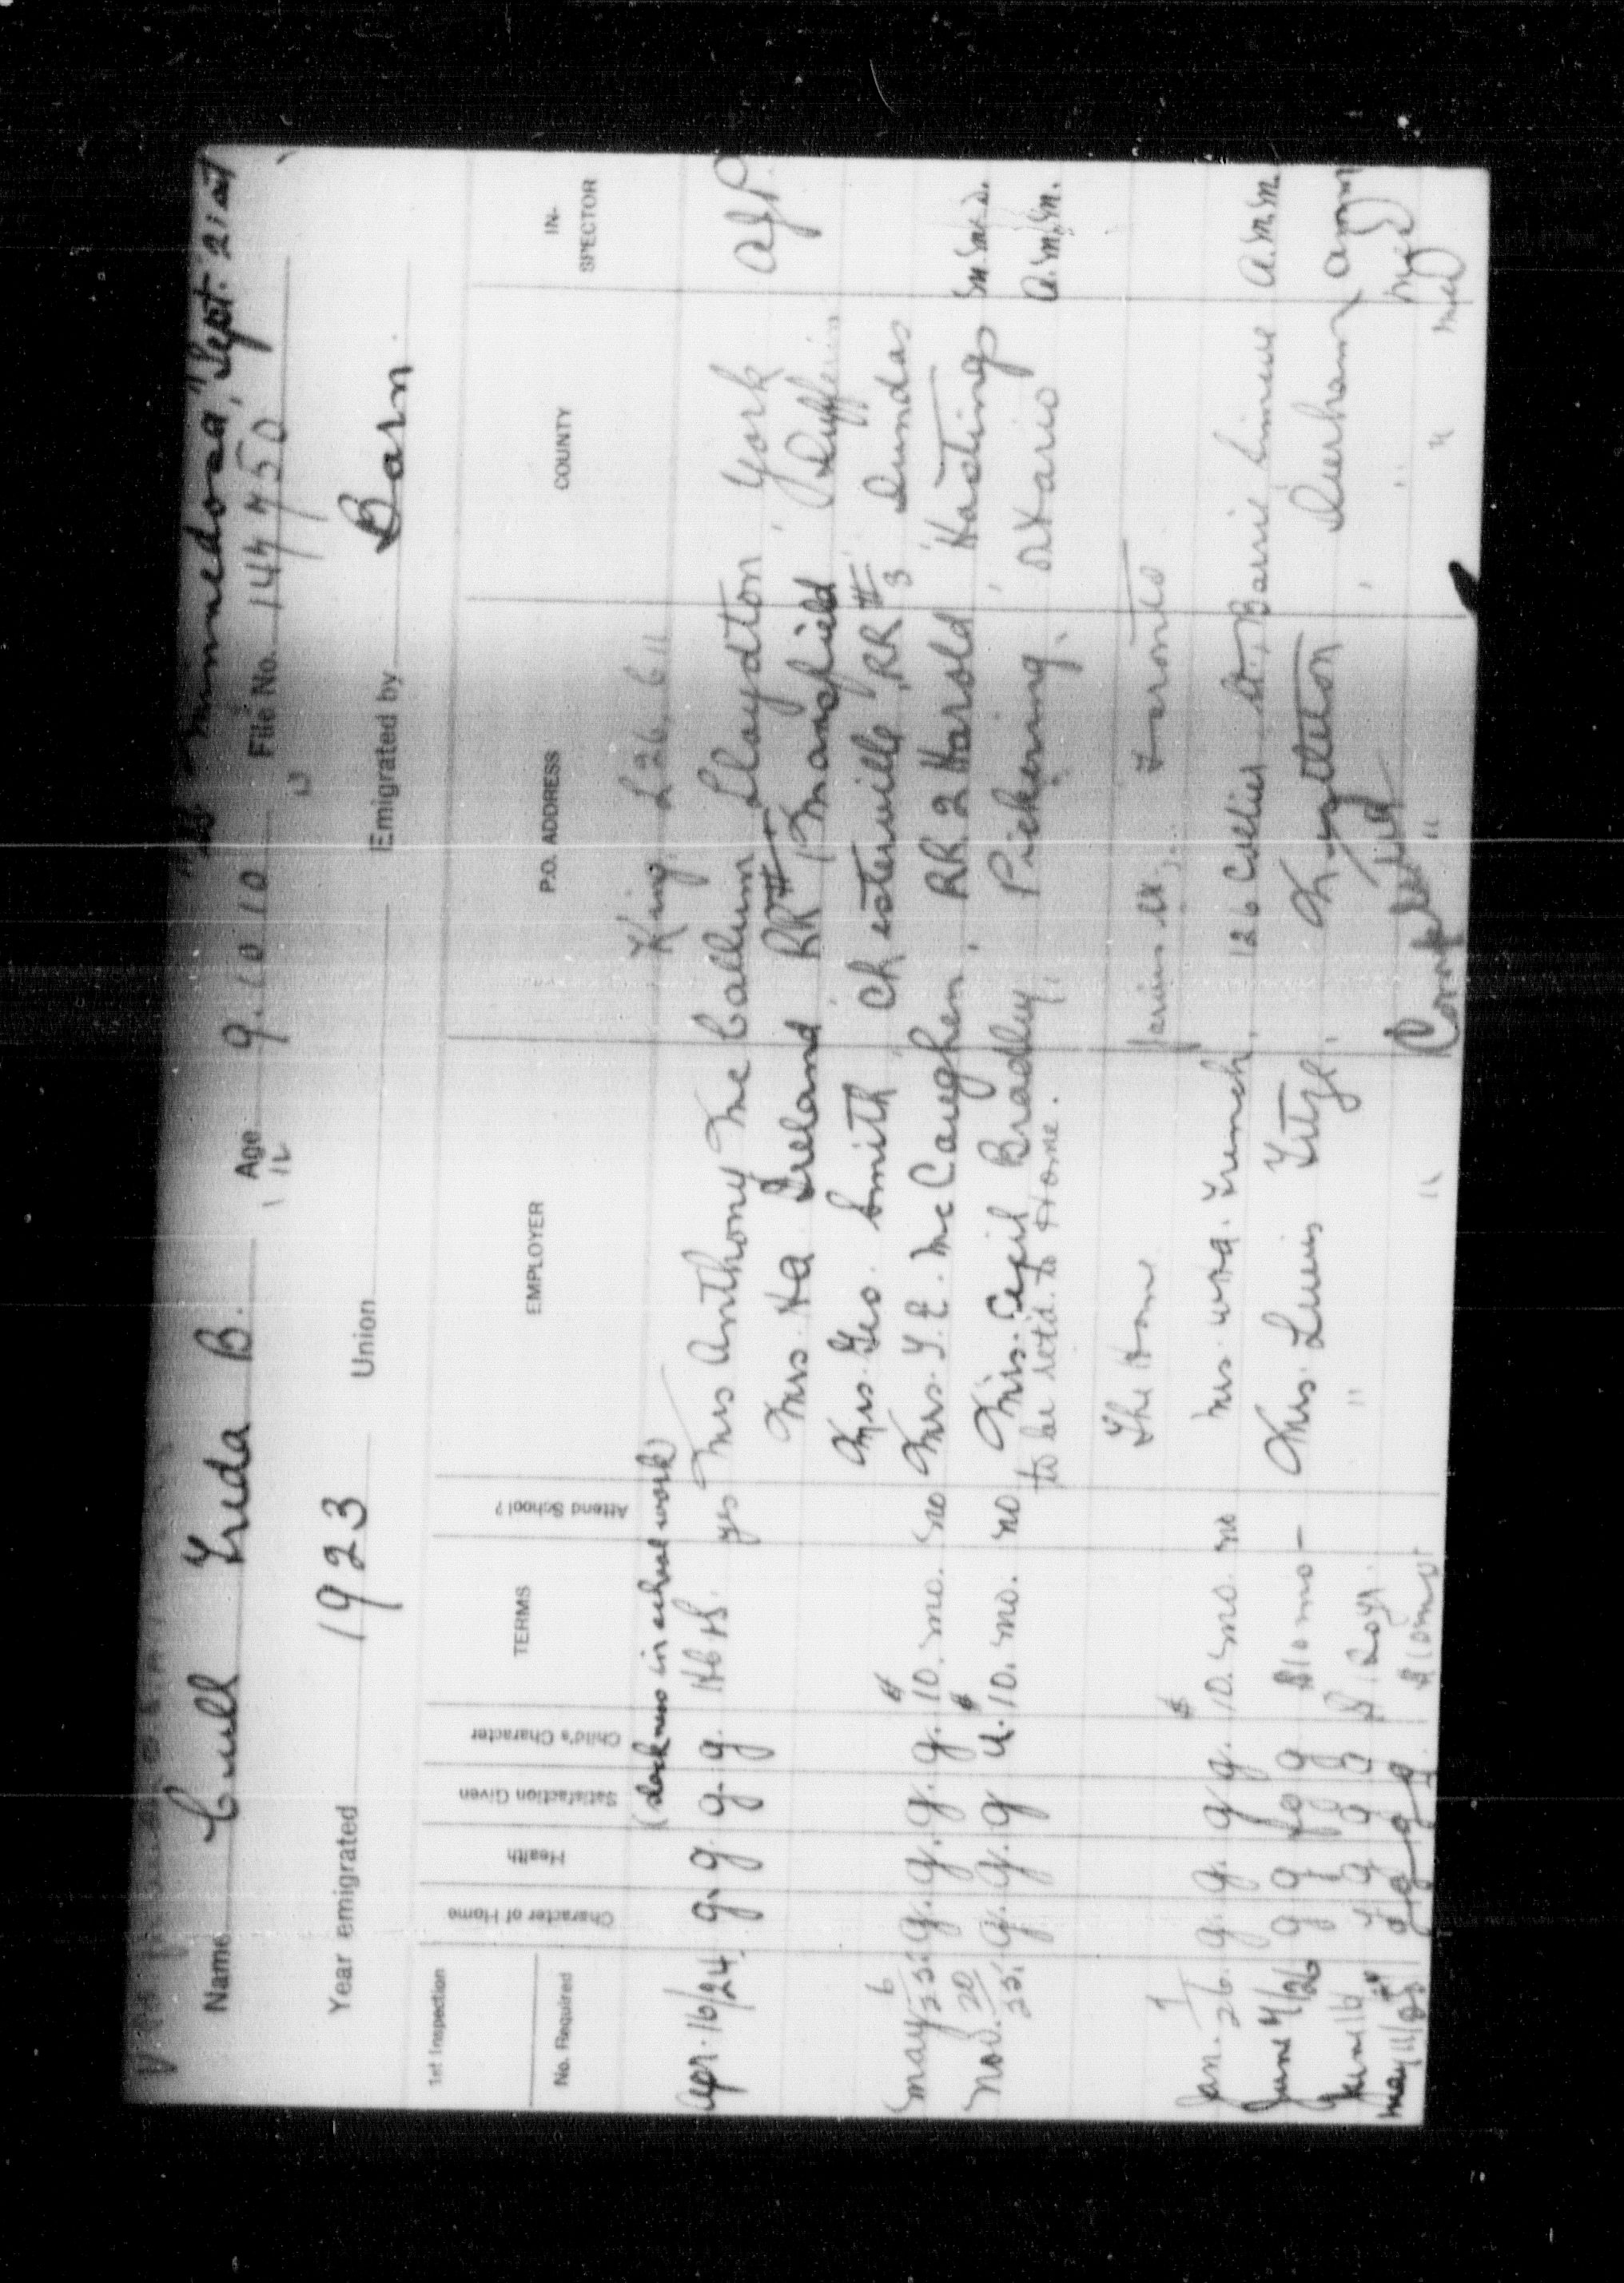 "SS Minnedosa", Sept. 21st
Name Cull Freda B. Age 9.10.10 File No. 147750
12
Year emigrated 1923 Union Emigrated by Barn.
1st Inspection
No. Required Character of Home Health Satisfaction Given Child's Character TERMS Attend School? EMPLOYER P.O. ADDRESS COUNTY IN-SPECTOR
King.
(slackness in school work)
Apr. 16/24. g. g. g. g. yes Mrs Anthony McCallum Lloydton York AJP.
Mrs. Ireland RR # Mansfield Dufferin
Mrs. Geo. Smith Chesterville, RR # 3 Dundas
May 6/25. g. g. g. g. $10. mo. no Mrs. McCaughen, RR 2 Harold Hastings
Nov. 20/25. g. g. g $10. mo. no Mrs. Cecil Bradley, Pickering, Ontario A.M.M.
to be retd. to Home.
The Home Jarvis St., Toronto
Jan. 7/26. g. g. g g. $10. mo. no Mrs. French, 126 Collier St., Barrie Simcoe A.M.M.
June 7/26 g g g $10 mo - Mrs. Lewis Durham AMM
" " "
Completed
" " " $10 mo